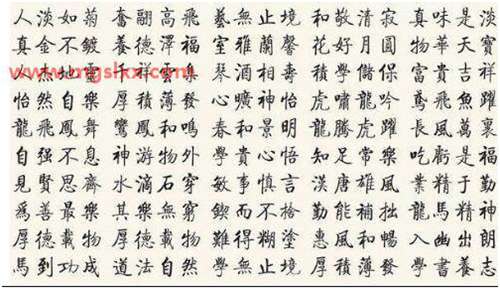 人淡如菊 奮翮高飛 藝無止境 和敬清寂 真味是淡
真金不鍍 養德澤福 室雅蘭馨 花好月圓 物華天寶
人杰地靈 琴酒相壽 學儲保 富貴吉祥
怡然自樂 厚積薄發 心曠神怡 虎嘯龍吟 鳶飛魚躍
龍飛鳳舞 鸞鳳和鳴 春和景明 龍騰虎躍 長風萬裏
自强不息 神游物外 學貴心悟 知足常樂 吃虧是福
見賢思齊 水滴石穿 敏事慎言 漢唐雄風 業精于勤
爲善最樂 其樂無窮 鍥而不捨 勤能補拙 龍馬精神
厚德載物 厚德載物 難得糊塗 惠風和暢 入幽出朗
馬到功成 道法自然 學無止境 厚積薄發 學書養志